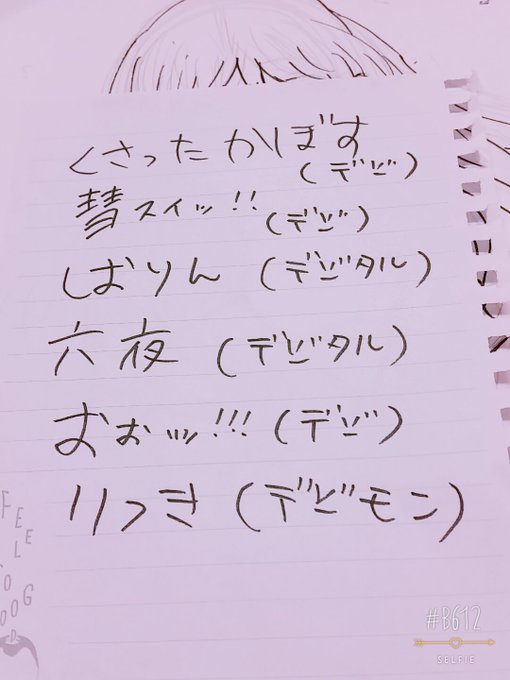 くさったかぼす
(デジ)
彗スイッ!! (デジ)
しおりん (デジタル)
六夜 (デジタル)
おぉッ!!! (デジ)
りつき (デジモン)
FEEL
GOOD
#B612
SELFIE